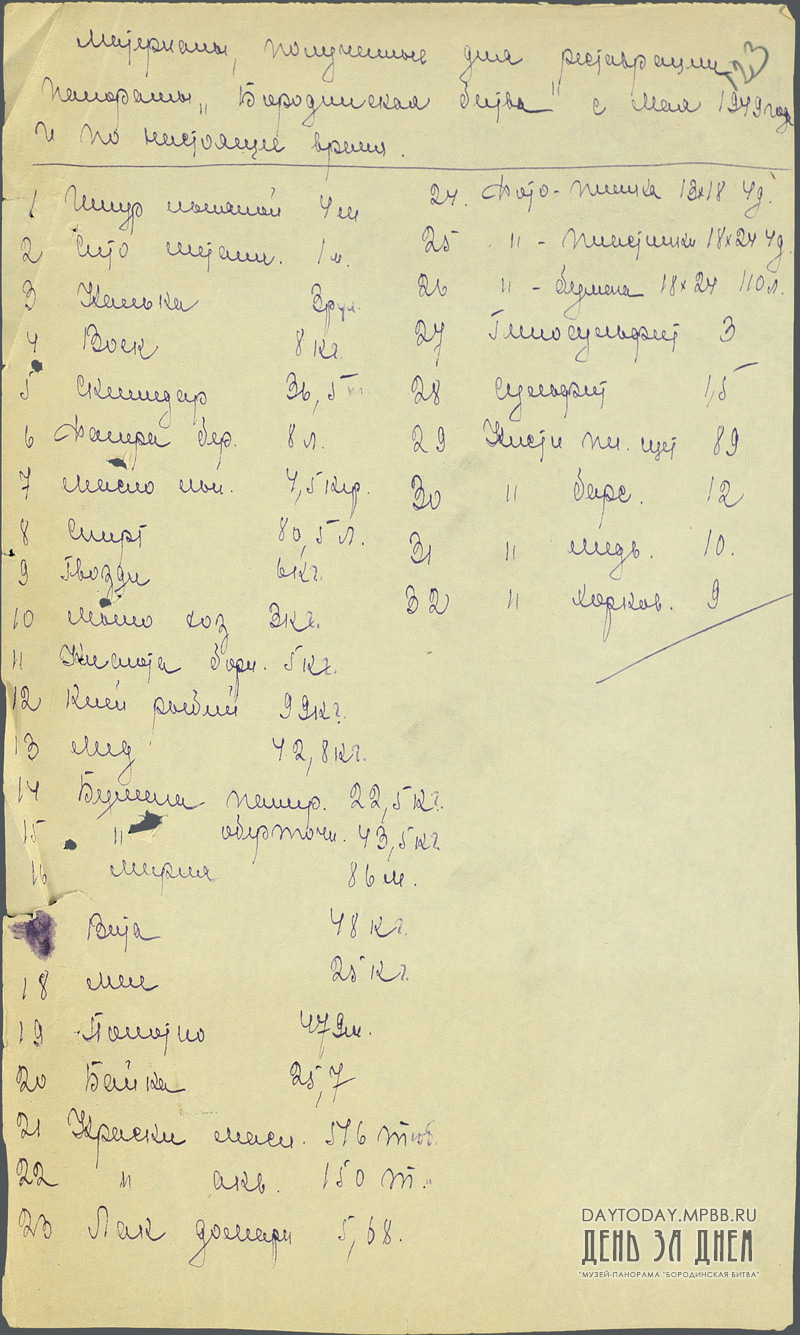 Материалы, полученные для реставрации
панорамы „Бородинская битва" с мая 1949 года
и по настоящее время.
123
1 Шнур льняной 4 м
2 Сито металл. 1 м.
3 Калька 3 рул.
4 Воск 8 кг.
5 Скипидар 36,5 кг.
6 Фанера бер. 8 л.
7 Масло льн. 4,5 кгр.
8 Спирт 80,5 л.
9 Гвозди 6 кг.
10 Мыло хоз 3 кг.
11 Кислота борн. 5 кг.
12 Клей рыбий 99 кг.
13 Мед 42,8 кг.
14 Бумага папир. 22,5 кг.
15 " оберточн. 43,5 кг
16 Марля 86 м.
Вата 48 кг.
18 Мел 25 кг.
19 Полотно 479 м.
20 Байка 25,7
21 Краски масл. 576 тюб.
22 " акв. 150 т.
23 Лак домарн 5,68.
24. Фото-пленка 13х18 4 д.
25 " - пластинки 18х24 4 д.
26 " - бумага 18х24 110 л.
27 Гипосульфит 3
28 Сульфит 1,5
29 Кисти пл. щет 89
30 " барс. 12
31 " медв. 10.
32 " хорков. 9
DAYTODAY.MPBB.RU
ДЕНЬ ЗА ДНЕМ
"МУЗЕЙ-ПАНОРАМА "БОРОДИНСКАЯ БИТВА"